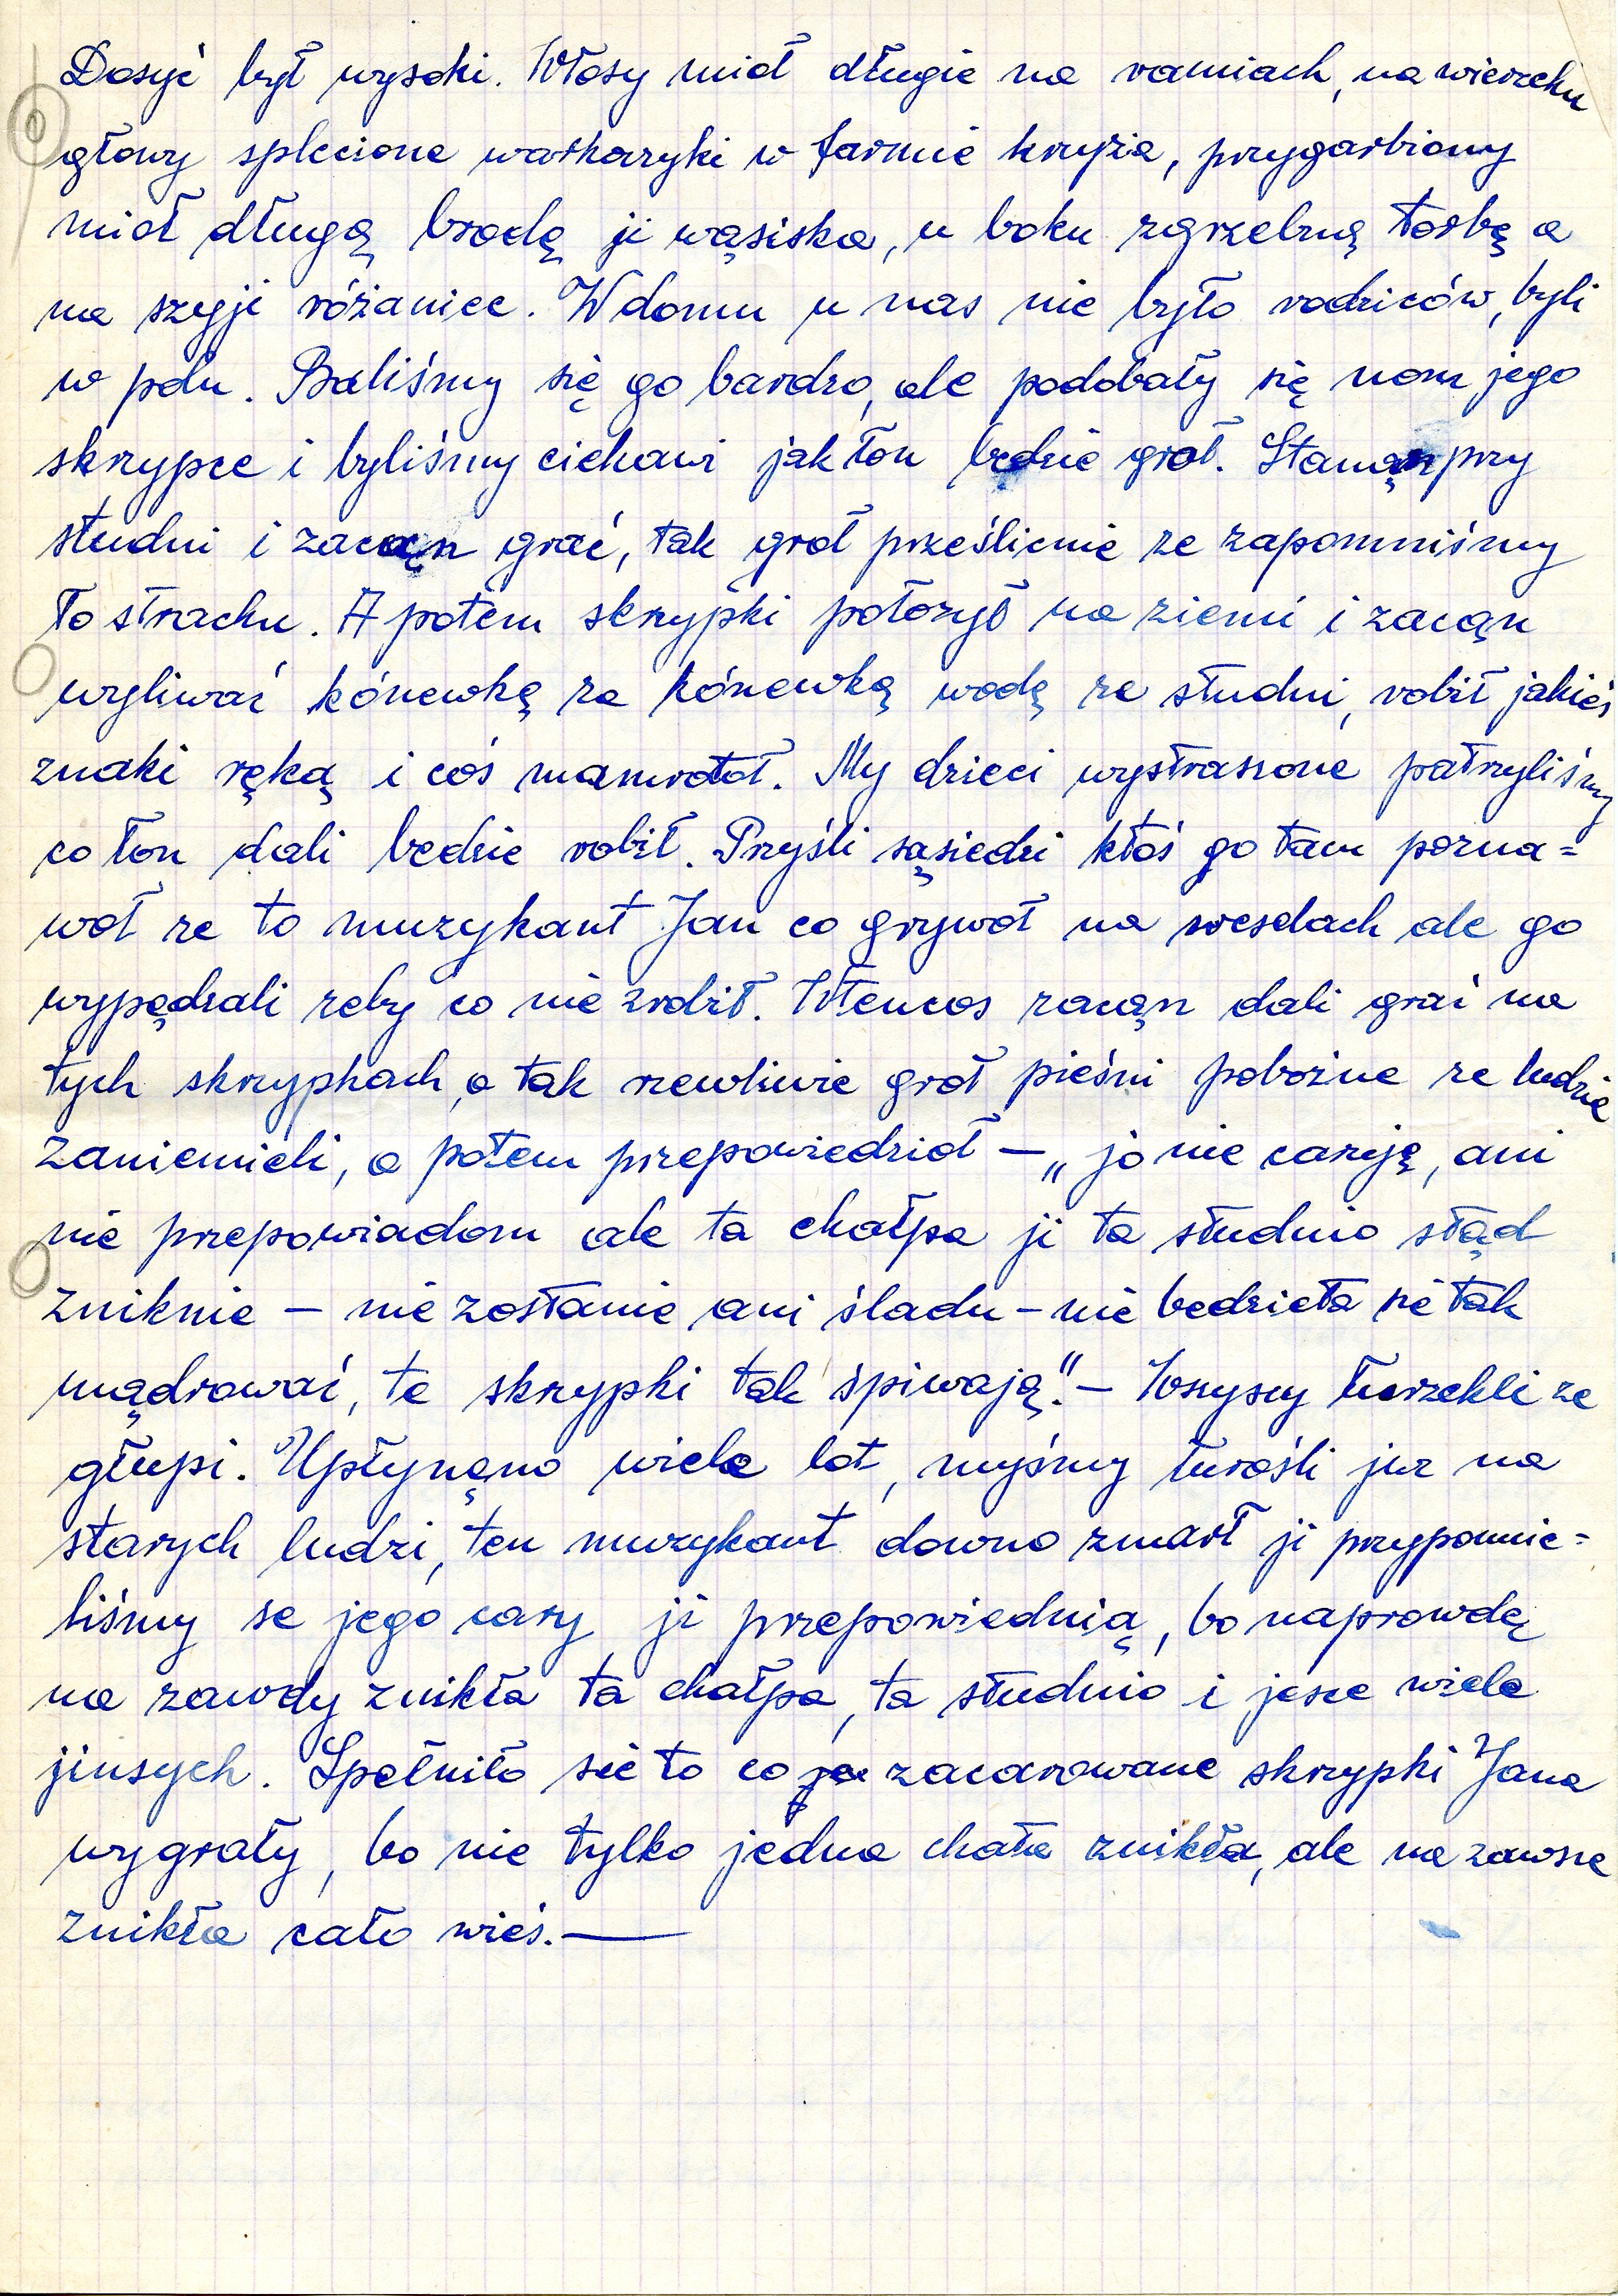 Dosyć był wysoki. Włosy mioł długie na ramiach, na wierzchu
głowy splecione warkoczyki w formie krzyża, przygarbiony
mioł długą brodę ji wąsiska, u boku zgrzebną torbę a
na szyji różaniec. W domu u nas nie było rodziców, byli
w polu. Baliśmy się go bardzo, ale podobały się nom jego
skrzypce i byliśmy ciekawi jak łon będzie groł. Stanąn przy
studni i zacąn grać, tak groł prześlicnie ze zapomniśmy
ło strachu. A potem skrzypki położył na ziemi i zacąn
wyliwać kónewkę za kónewką wodę ze studni, robił jakieś
znaki ręką i coś mamrotoł. My dzieci wystrasone patrzyliśmy
co łon dali bedzie robił. Przyśli sąsiedzi ktoś go tam pozna=
woł ze to muzykant Jan co grywoł na weselach ale go
wypędzali zeby co nie zrobił. Wtencos zacąn dali grać na
tych skrzypkach, a tak rzewliwie groł pieśni pobożne ze ludzie
zaniemieli, a potem przepowiedzioł – „jo nie caruję, ani
nie przepowiadom ale ta chałpa ji ta studnio stąd
zniknie – nie zostanie ani śladu – nie bedzieta sie tak
mądrować, te skrzypki tak śpiwają." – Wszyscy łurzekli ze
głupi. Upłynęno wiele lot, myśmy łurośli juz na
starych ludzi, ten muzykant downo zmarł ji przypomnie=
liśmy se jego cary ji przepowiednią, bo naprowdę
na zawdy znikła ta chałpa, ta studnio i jesce wiele
jinsych. Spełniło sie to co zacarowane skrzypki Jana
wygrały, bo nie tylko jedna chata znikła, ale na zawsze
znikła cało wieś. —